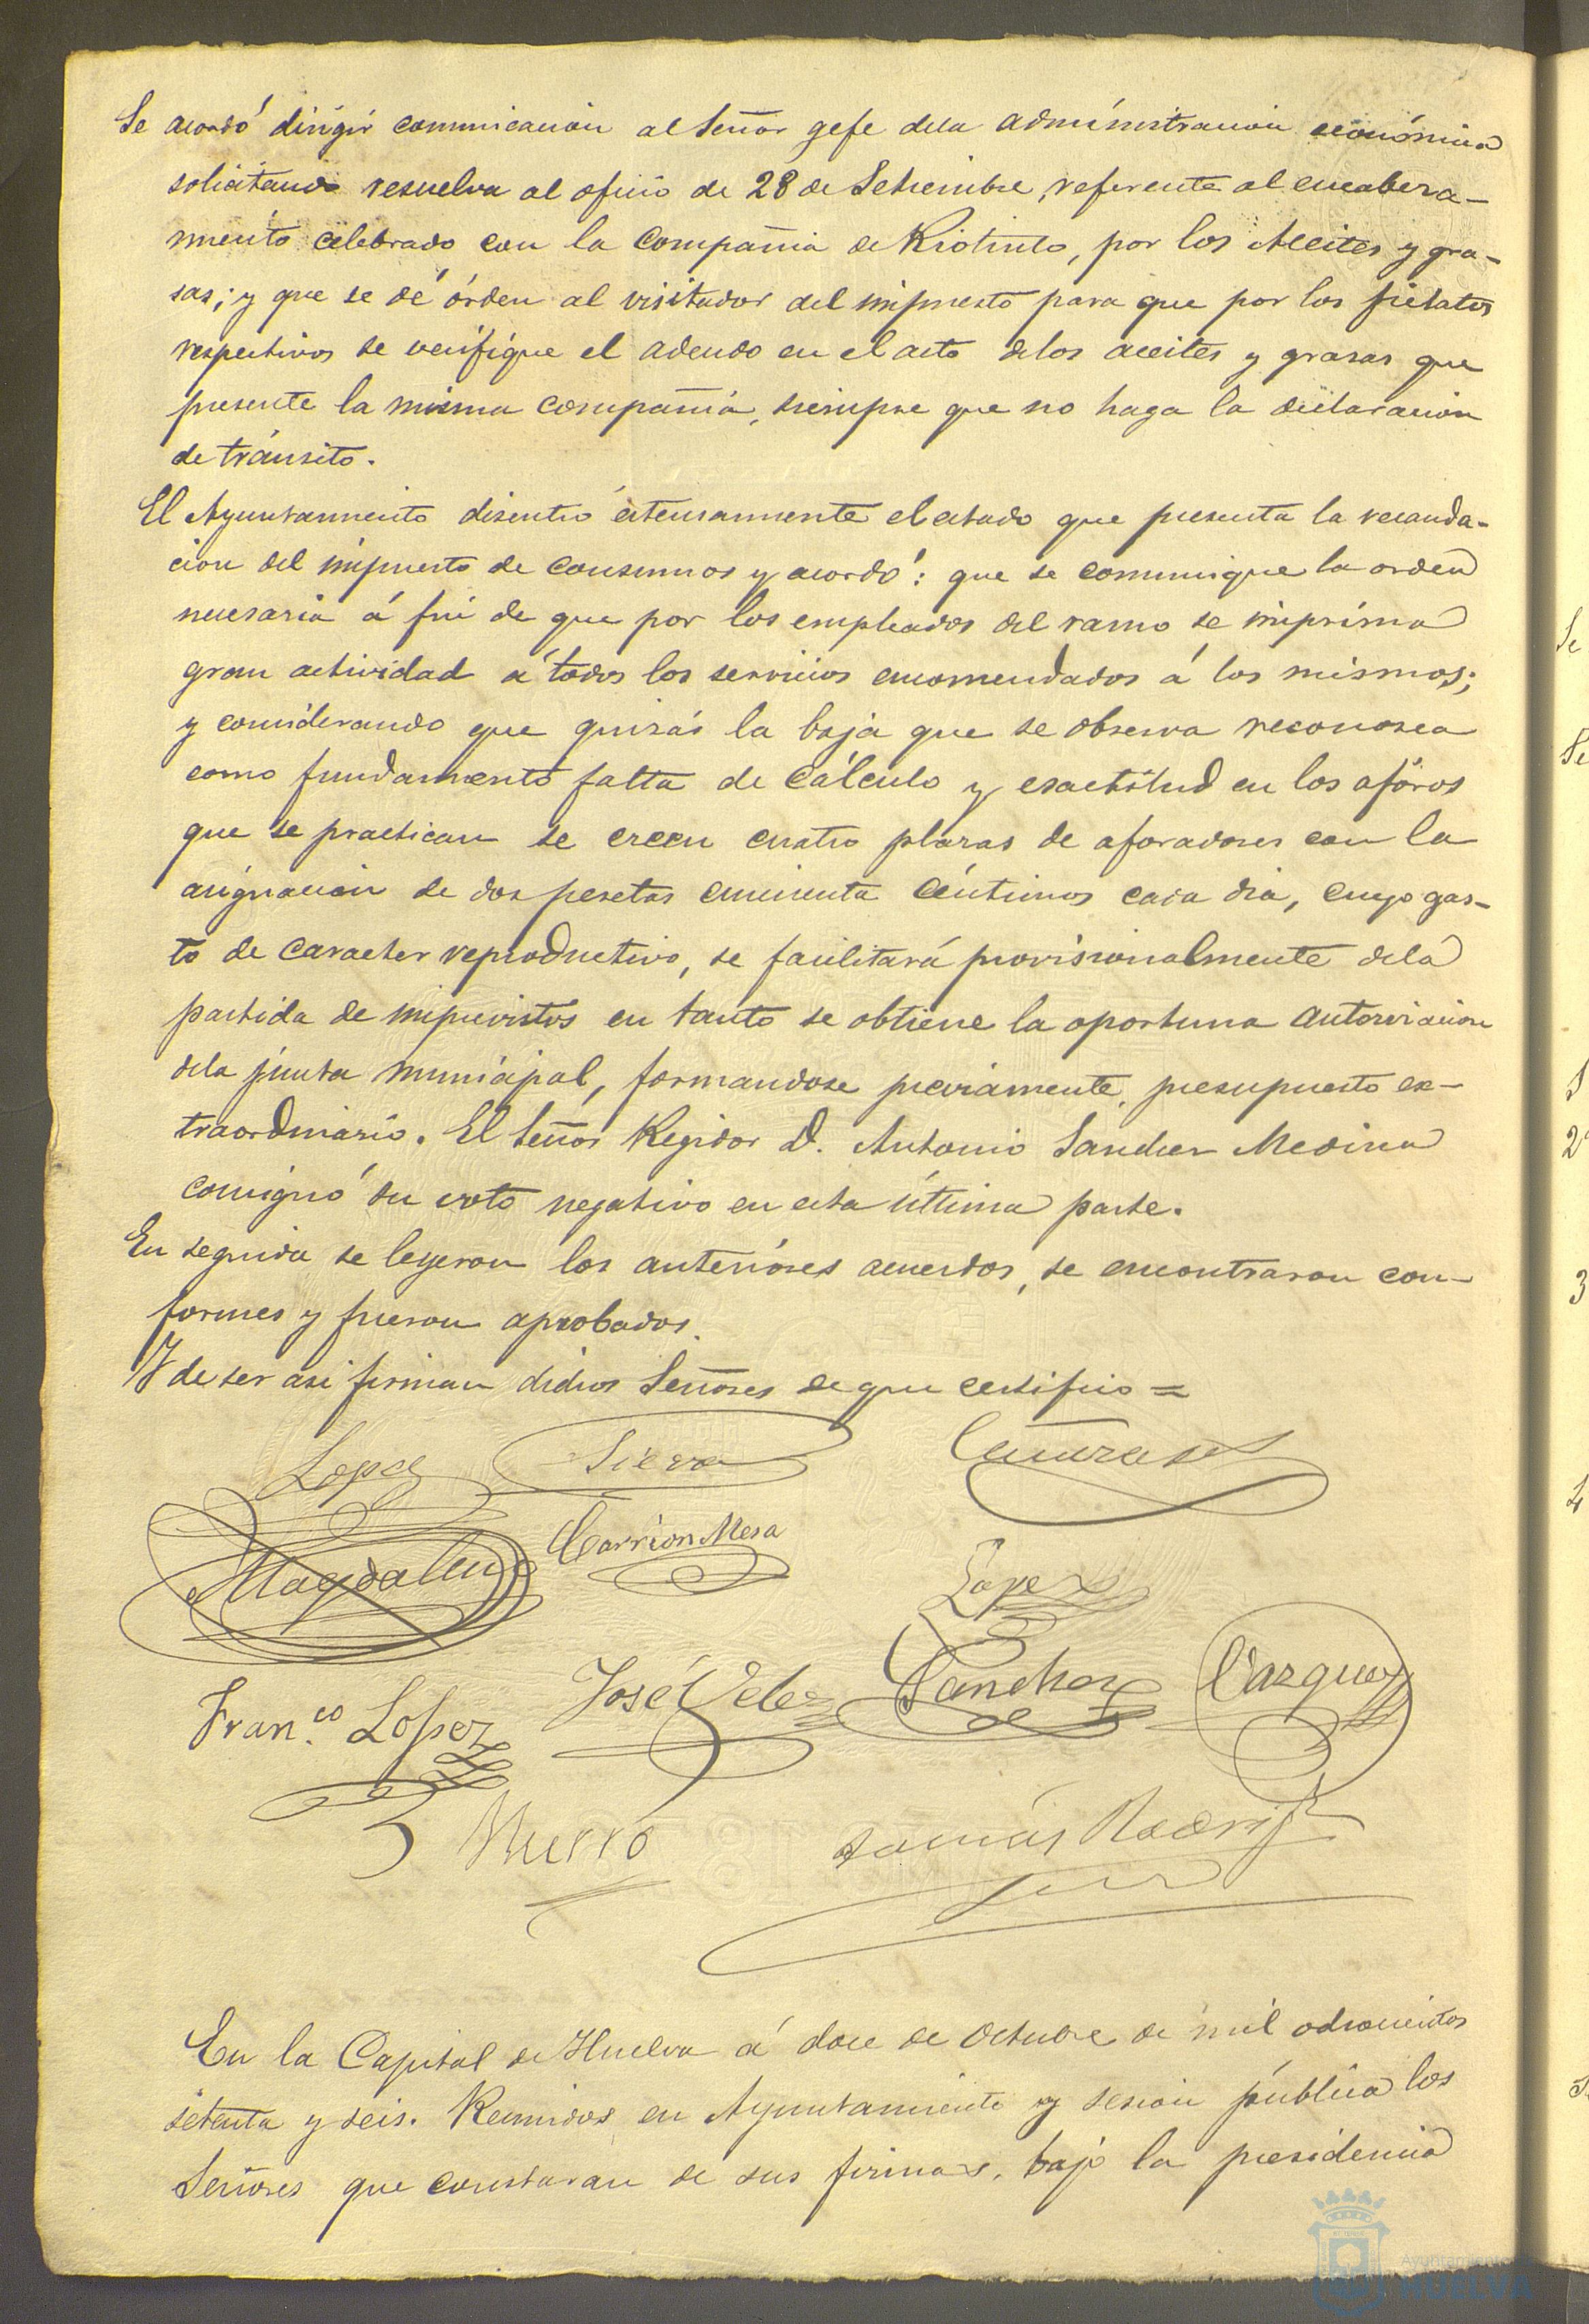 Se acordó dirigir comunicacion al Señor gefe dela administracion económica
solicitando resuelva al oficio de 28 de Setiembre, referente al encabeza-
miento celebrado con la Compañia de Riotinto, por los Aceites y gra-
sas; y que se dé órden al visitador del impuesto para que por los fielatos
respectivos se verifique el adeudo en el acto delos aceites y grasas que
presente la misma Compañia, siempre que no haga la declaracion
de tránsito.
El Ayuntamiento discutió estensamente el estado que presenta la recauda-
cion del impuesto de consumos y acordó: que se comunique la orden
necesaria á fin de que por los empleados del ramo se imprima
gran actividad á todos los servicios encomendados á los mismos;
y considerando que quizás la baja que se observa reconosca
como fundamento falta de cálculo y esactitud en los aforos
que se practican se creen cuatro plazas de aforadores con la
asignacion de dos pesetas cincuenta céntimos cada dia, cuyo gas-
to de caracter reproductivo, se facilitará provisionalmente dela
partida de imprevistos en tanto se obtiene la oportuna autorizacion
dela junta municipal, formandose previamente, presupuesto es-
traordinario. El Señor Regidor D. Antonio Sanchez Medina
consignó su voto negativo en esta última parte.
En seguida se leyeron los anteriores acuerdos, se encontraron con-
formes y fueron aprobados.
Y de ser asi firman dichos Señores de que certifico =
Lopez Siera
Magdalena Carrion Mesa
Lopez
Fran.co Lopez José Velez Sanchez Vazquez
Tomás Rodrig
En la Capital de Huelva á doce de Octubre de mil ochocientos
setenta y seis. Reunidos en Ayuntamiento y sesion pública los
Señores que constaran de sus firmas, bajo la presidencia
Ayuntamiento
HUELVA